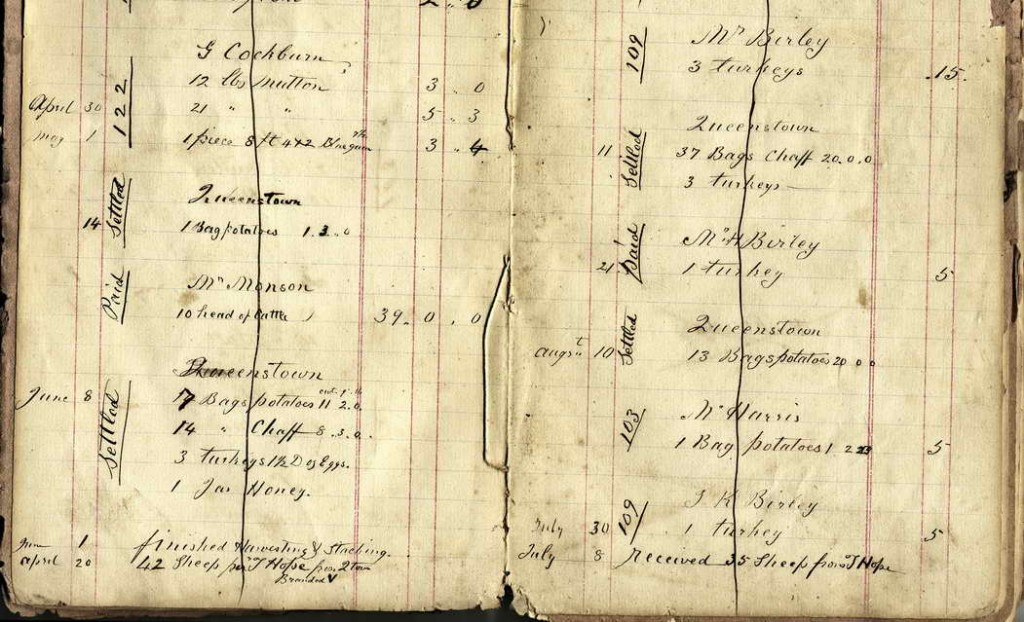 G Cockburn
122
12 lbs Mutton 3 . 0
April 30 21 " " 5 . 3
May 1 1 piece 8 ft 4x2 Bluegum 3 . 4
Settled
Queenstown
14 1 Bag potatoes 1 . 3 . 0
Paid
Mr Monson
10 head of Cattle 39 . 0 . 0
Settled
Queenstown
June 8 17 Bags potatoes 11 2 . 0
14 " Chaff 8 . 3 . 0
3 turkeys 1½ Doz Eggs.
1 Jar Honey.
1 finished Harvesting & Stacking.
April 20 42 Sheep from T Hope
Branded V
109
Mr Birley
3 turkeys 15
Settled
Queenstown
11 37 Bags Chaff 20 . 0 . 0
3 turkeys
Paid
Birley
21 1 turkey 5
Settled
Queenstown
Augst 10 13 Bags potatoes 20 0 0
103
Mr Harris
1 Bag potatoes 1 2 5
109
Birley
July 30 1 turkey 5
July 8 received 35 Sheep from T Hope